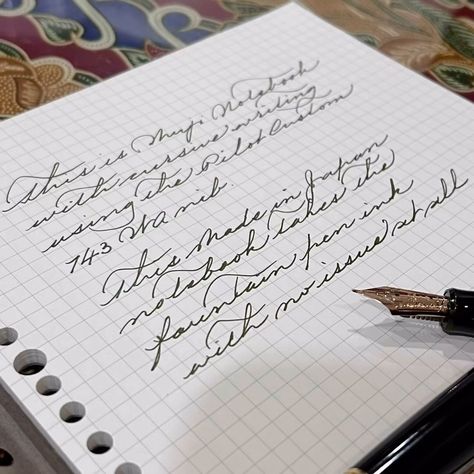 This is Muji Notebook
with cursive writing
using the Pilot Custom
743 WA nib.
This Made in Japan
notebook takes the
fountain pen ink
with no issue at all